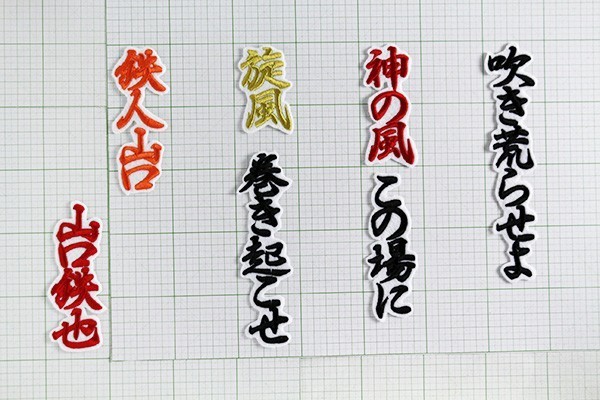 吹き荒らせよ
神の風 この場に
旋風 巻き起こせ
鉄人山口
山口鉄也